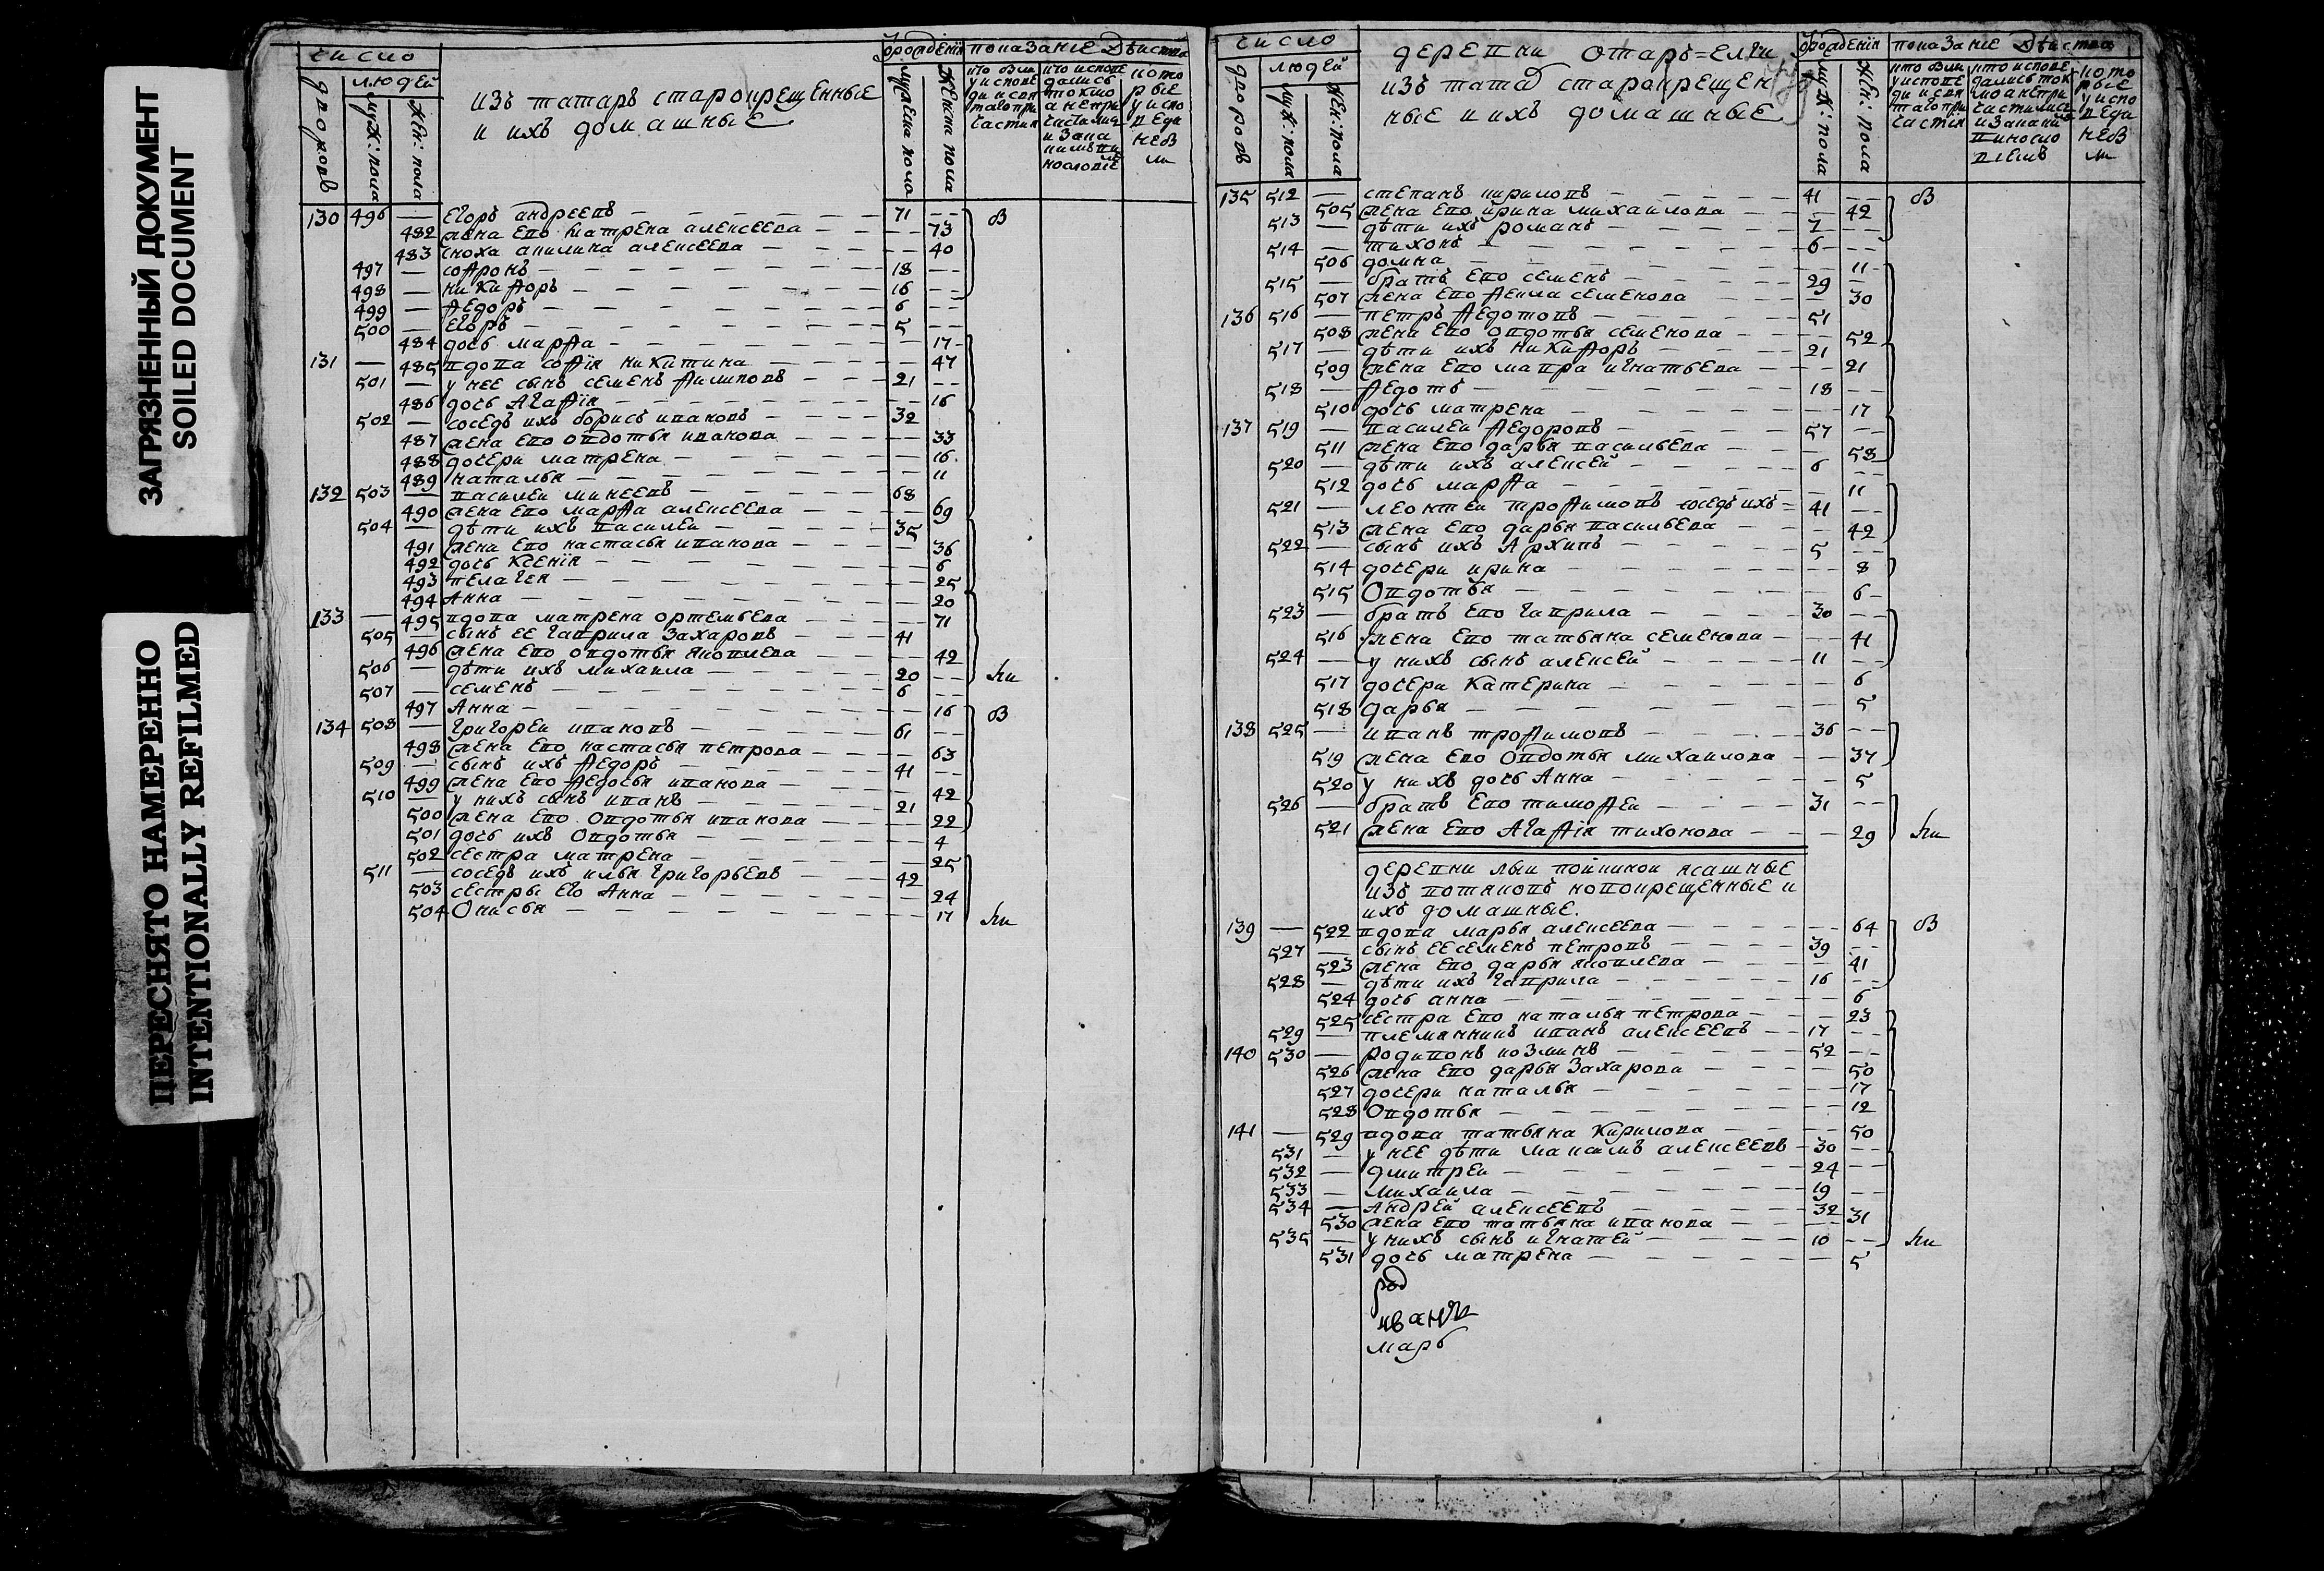 ЗАГРЯЗНЕННЫЙ ДОКУМЕНТ
SOILED DOCUMENT
ПЕРЕСНЯТО НАМЕРЕННО
INTENTIONALLY REFILMED
число
людей
дворовъ
муж: пола
жен: пола
изъ татаръ старокрещенные
и ихъ домашные
Ѿ рождения
мужеска пола
женска пола
показание действа
130 496 — егоръ андреевъ 71
482 жена ево матрена алексеева 73
483 сноха акилина алексеева 40
497 — софронъ 18
498 — никифоръ 16
499 — федоръ 6
500 — егоръ 5
484 дочь марфа 17
131 — 485 вдова софія никитина 47
501 — у нее сынъ семенъ филиповъ 21
486 дочь агафія 16
502 — соседъ ихъ борисъ ивановъ 32
487 жена ево овдотья иванова 33
488 дочери матрена 16
489 наталья 11
132 503 — василеи минеевъ 68
490 жена ево марфа алексеева 69
504 — дѣти ихъ василеи 35
491 жена ево настасья иванова 36
492 дочь ксенія 6
493 пелагея 25
494 анна 20
133 — 495 вдова матрена ортемьева 71
505 — сынъ ее гаврила захаровъ 41
496 жена ево овдотья яковлева 42
506 — дѣти ихъ михаила 20
507 — семенъ 6
497 анна 16
134 508 — григореи ивановъ 61
498 жена ево настасья петрова 63
509 — сынъ ихъ федоръ 41
499 жена ево федосья иванова 42
510 — у нихъ сынъ иванъ 21
500 жена ево овдотья иванова 22
501 дочь ихъ овдотья 4
502 сестра матрена 25
511 — соседъ ихъ илья григорьевъ 42
503 сестры его анна 24
504 онисья 17
число
людей
дворовъ
муж: пола
жен: пола
деревни отаръ=елги
изъ татаръ старокрещен
ные и ихъ домашные
Ѿ рождения
муж: пола
жен: пола
показание действа
135 512 — степанъ кириловъ 41
505 жена ево ирина михаилова 42
513 — дѣти ихъ романъ 7
514 — тихонъ 6
506 домна 11
515 — братъ ево семенъ 29
507 жена ево фекла семенова 30
136 516 — петръ федотовъ 51
508 жена ево овдотья семенова 52
517 — дѣти ихъ никифоръ 21
509 жена ево мавра игнатьева 21
518 — федотъ 18
510 дочь матрена 17
137 519 — василеи федоровъ 57
511 жена ево дарья васильева 58
520 — дѣти ихъ алексей 6
512 дочь марфа 11
521 — леонтеи трофимовъ соседъ ихъ 41
513 жена ево дарья васильева 42
522 — сынъ ихъ архипъ 5
514 дочери ирина 8
515 овдотья 6
523 — братъ ево гаврила 30
516 жена ево татьяна семенова 41
524 — у нихъ сынъ алексей 11
517 дочери катерина 6
518 дарья 5
138 525 — иванъ трофимовъ 36
519 жена ево овдотья михаилова 37
520 у нихъ дочь анна 5
526 — братъ ево тимофеи 31
521 жена ево агафія тихонова 29
деревни лыи ясашные
изъ вотяковъ новокрещенные и
ихъ домашные.
139 — 522 вдова марья алексеева 64
527 — сынъ ее семенъ петровъ 39
523 жена ево дарья яковлева 41
528 — дѣти ихъ гаврила 16
524 дочь анна 6
525 сестра ево наталья петрова 23
529 — племянникъ иванъ алексеевъ 17
140 530 — родивонъ козминъ 52
526 жена ево дарья захарова 50
527 дочери наталья 17
528 овдотья 12
141 — 529 вдова татьяна кирилова 50
531 — у нее дѣти максимъ алексеевъ 30
532 — дмитреи 24
533 — михаила 19
534 — андрей алексеевъ 32
530 жена ево татьяна иванова 31
535 — у нихъ сынъ игнатей 10
531 дочь матрена 5